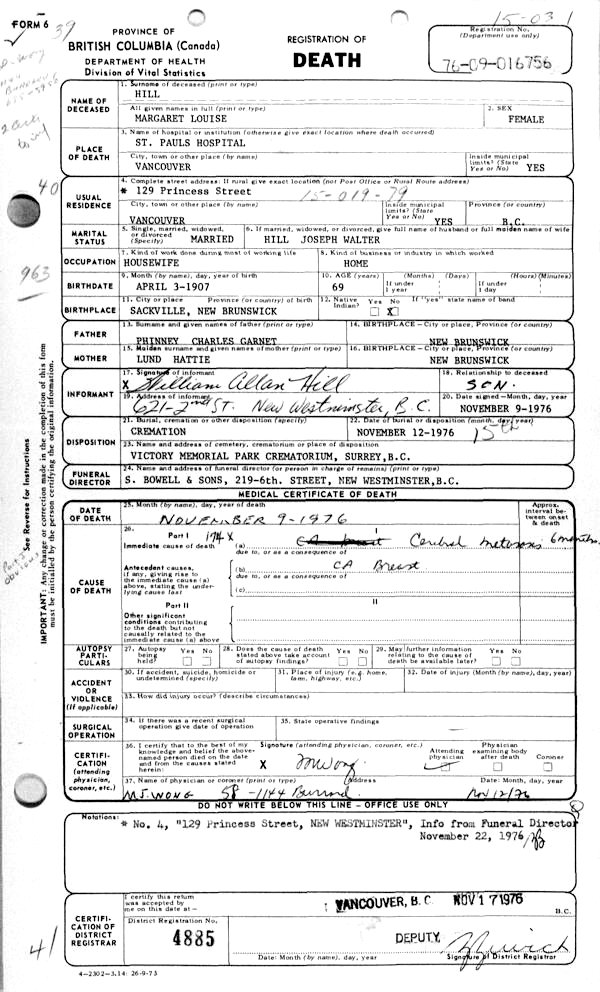 FORM 6
39
15-03 1
PROVINCE OF
BRITISH COLUMBIA (Canada)
DEPARTMENT OF HEALTH
Division of Vital Statistics
REGISTRATION OF
DEATH
Registration No.
(Department use only)
76-09-016756
NAME OF DECEASED
1. Surname of deceased (print or type)
HILL
All given names in full (print or type)
2. SEX
MARGARET LOUISE
FEMALE
PLACE OF DEATH
3. Name of hospital or institution (otherwise give exact location where death occurred)
ST. PAULS HOSPITAL
City, town or other place (by name)
Inside municipal limits? (State Yes or No)
VANCOUVER
YES
40
USUAL RESIDENCE
4. Complete street address: If rural give exact location (not Post Office or Rural Route address)
* 129 Princess Street
15-019-79
City, town or other place (by name)
Inside municipal limits? (State Yes or No)
Province (or country)
VANCOUVER
YES
B.C.
MARITAL STATUS
5. Single, married, widowed, or divorced (Specify)
MARRIED
6. If married, widowed, or divorced, give full name of husband or full maiden name of wife
HILL JOSEPH WALTER
OCCUPATION
7. Kind of work done during most of working life
HOUSEWIFE
8. Kind of business or industry in which worked
HOME
963
BIRTHDATE
9. Month (by name), day, year of birth
APRIL 3-1907
10. AGE (years)
69
(Months) (Days)
If under 1 year
(Hours) (Minutes)
If under 1 day
BIRTHPLACE
11. City or place Province (or country) of birth
SACKVILLE, NEW BRUNSWICK
12. Native Indian?
Yes No
X
If "yes" state name of band
FATHER
13. Surname and given names of father (print or type)
PHINNEY CHARLES GARNET
14. BIRTHPLACE – City or place, Province (or country)
NEW BRUNSWICK
MOTHER
15. Maiden surname and given names of mother (print or type)
LUND HATTIE
16. BIRTHPLACE – City or place, Province (or country)
NEW BRUNSWICK
INFORMANT
17. Signature of informant
X William Allan Hill
18. Relationship to deceased
SON.
19. Address of informant
621-2nd ST. New Westminster, B.C.
20. Date signed – Month, day, year
NOVEMBER 9-1976
DISPOSITION
21. Burial, cremation or other disposition (specify)
CREMATION
22. Date of burial or disposition (month, day, year)
NOVEMBER 12-1976
15th
23. Name and address of cemetery, crematorium or place of disposition
VICTORY MEMORIAL PARK CREMATORIUM, SURREY,B.C.
FUNERAL DIRECTOR
24. Name and address of funeral director (or person in charge of remains) (print or type)
S. BOWELL & SONS, 219-6th. STREET, NEW WESTMINSTER,B.C.
IMPORTANT: Any change or correction made in the completion of this form must be initialled by the person certifying the original information.
See Reverse for Instructions
MEDICAL CERTIFICATE OF DEATH
DATE OF DEATH
25. Month (by name), day, year of death
NOVEMBER 9-1976
Approx. interval between onset & death
CAUSE OF DEATH
26.
Part I
174 X
I
Immediate cause of death
(a)
CA Breast
Cerebral
6 months.
due to, or as a consequence of
Antecedent causes, if any, giving rise to the immediate cause (a) above, stating the underlying cause last
(b)
CA Breast
due to, or as a consequence of
(c)
Part II
II
Other significant conditions contributing to the death but not causally related to the immediate cause (a) above
AUTOPSY PARTICULARS
27. Autopsy being held?
Yes No
28. Does the cause of death stated above take account of autopsy findings?
Yes No
29. May further information relating to the cause of death be available later?
Yes No
ACCIDENT OR VIOLENCE (If applicable)
30. If accident, suicide, homicide or undetermined (specify)
31. Place of injury (e.g. home, farm, highway, etc.)
32. Date of injury (Month (by name), day, year)
33. How did injury occur? (describe circumstances)
SURGICAL OPERATION
34. If there was a recent surgical operation give date of operation
35. State operative findings
CERTIFICATION (attending physician, coroner, etc.)
36. I certify that to the best of my knowledge and belief the above-named person died on the date and from the causes stated herein:
Signature (attending physician, coroner, etc.)
X MWong
Attending physician
Physician examining body after death
Coroner
37. Name of physician or coroner (print or type)
Address
Date: Month, day, year
M.J. WONG
-1144 Burrard
Nov 12/76
DO NOT WRITE BELOW THIS LINE – OFFICE USE ONLY
Notations:
* No. 4, "129 Princess Street, NEW WESTMINSTER", Info from Funeral Director
November 22, 1976
CERTIFICATION OF DISTRICT REGISTRAR
I certify this return was accepted by me on this date at –
VANCOUVER, B.C. NOV 17 1976
B.C.
District Registration No.
4885
DEPUTY
41
Date: Month (by name), day, year
Signature of District Registrar
4–2302–3.14: 26-9-73